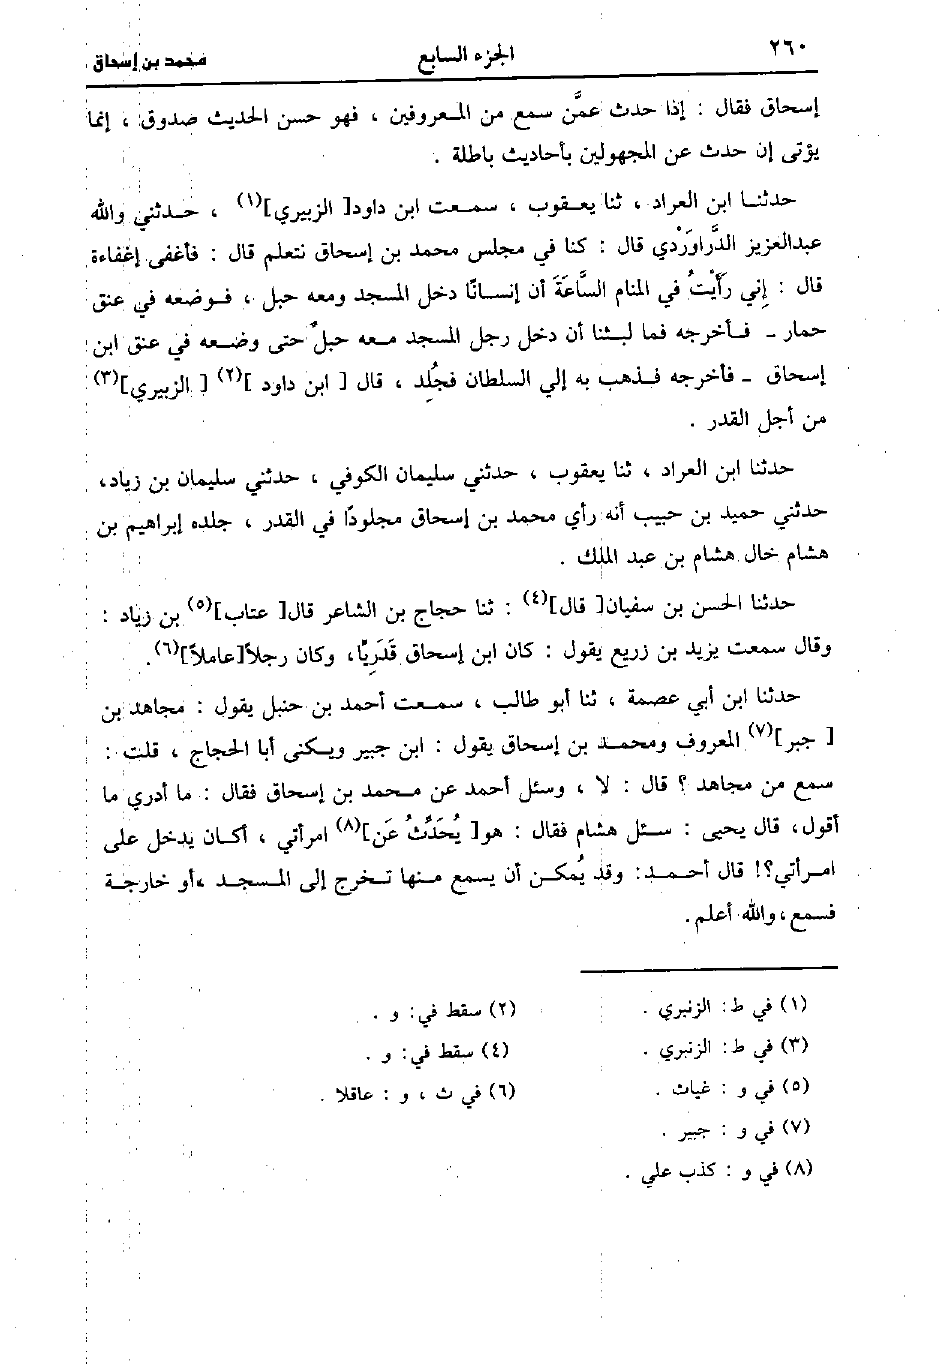 ٢٦٠ الجزء السابع محمد بن إسحاق
إسحاق فقال : إذا حدث عمَّن سمع من المعروفين ، فهو حسن الحديث صدوق ، إنما
يؤتى إن حدث عن المجهولين بأحاديث باطلة .
حدثنا ابن العراد ، ثنا يعقوب ، سمعت ابن داود[ الزبيري](١) ، حدثني والله
عبدالعزيز الدَّراوَرْدي قال : كنا في مجلس محمد بن إسحاق نتعلم قال : فأغفى إغفاءة
قال : إني رَأَيْتُ في المنام السَّاعَةَ أن إنسانًا دخل المسجد ومعه حبل ، فوضعه في عنق
حمار ـ فأخرجه فما لبثنا أن دخل رجل المسجد معه حبلٌ حتى وضعه في عنق ابن
إسحاق ـ فأخرجه فذهب به إلي السلطان فجُلِد ، قال [ ابن داود ](٢) [ الزبيري](٣)
من أجل القدر .
حدثنا ابن العراد ، ثنا يعقوب ، حدثني سليمان الكوفي ، حدثني سليمان بن زياد،
حدثني حميد بن حبيب أنه رأي محمد بن إسحاق مجلودًا في القدر ، جلده إبراهيم بن
هشام خال هشام بن عبد الملك .
حدثنا الحسن بن سفيان[ قال](٤) : ثنا حجاج بن الشاعر قال[ عتاب](٥) بن زياد :
وقال سمعت يزيد بن زريع يقول : كان ابن إسحاق قَدَرِيًّا، وكان رجلاً[عاملاً](٦).
حدثنا ابن أبي عصمة ، ثنا أبو طالب ، سمعت أحمد بن حنبل يقول : مجاهد بن
[ جبر](٧) المعروف ومحمد بن إسحاق يقول : ابن جبير ويكنى أبا الحجاج ، قلت :
سمع من مجاهد ؟ قال : لا ، وسئل أحمد عن محمد بن إسحاق فقال : ما أدري ما
أقول، قال يحيى : سئل هشام فقال : هو[ يُحَدِّثُ عَن](٨) امرأتي ، أكان يدخل على
امرأتي؟! قال أحمد: وقد يُمكن أن يسمع منها تخرج إلى المسجد ،أو خارجة
فسمع ، والله أعلم.
(١) في ط: الزنبري . (٢) سقط في: و .
(٣) في ط: الزنبري . (٤) سقط في: و .
(٥) في و : غياث . (٦) في ث ، و : عاقلا .
(٧) في و : جبير .
(٨) في و : كذب علي .